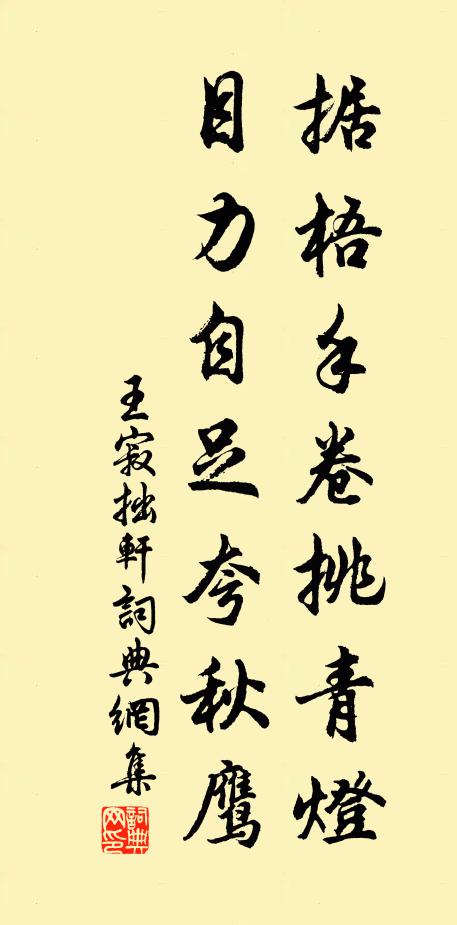 据梧手卷挑青燈
目力自足夸秋鷹
王寂拙軒詞典網集
詞典网印